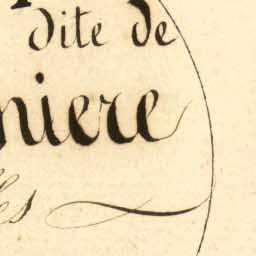 dite de
niere
es